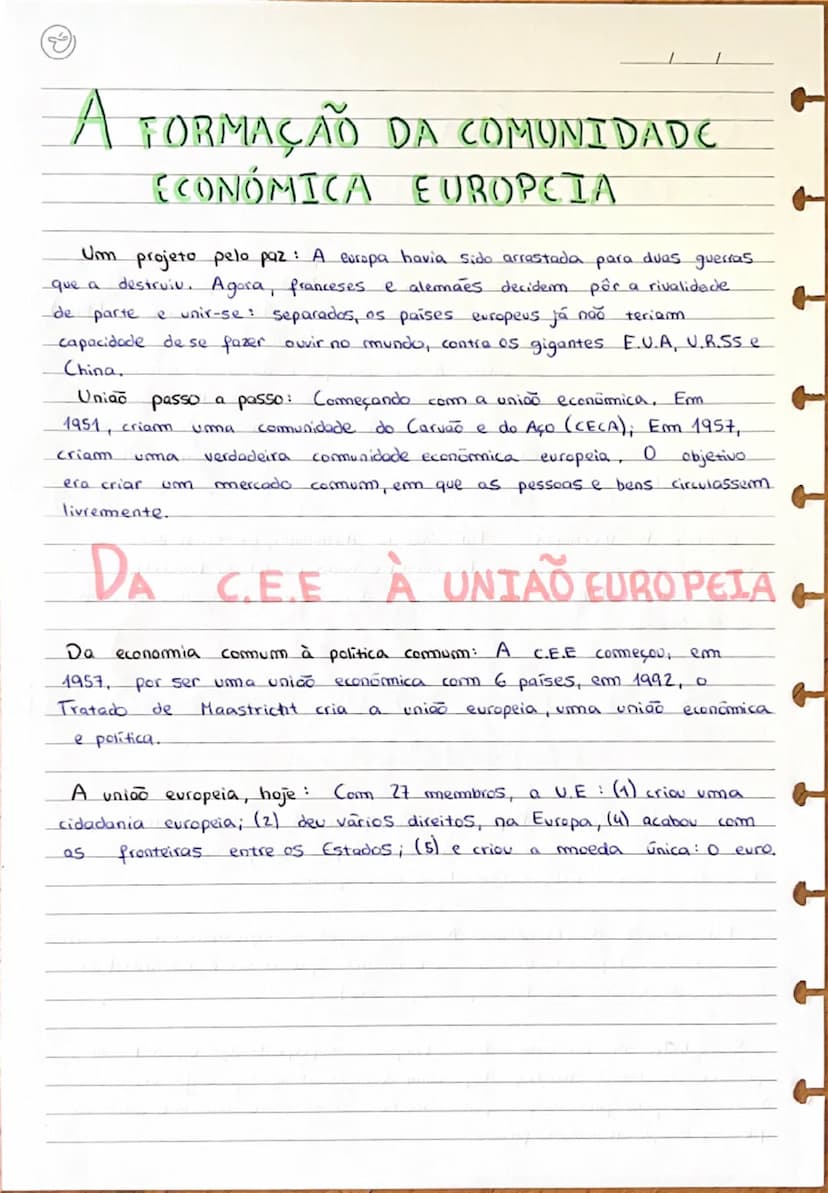 A FORMAÇÃO DA COMUNIDADE
ECONÓMICA EUROPEIA
Um projeto pelo paz: A europa havia sido arrastada para duas guerras
que a destruiu. Agora, franceses e alemães decidem pôr a rivalidade
de parte e unir-se: separados, os países europeus já não teriam
capacidade de se fazer ouvir no mundo, contra os gigantes E.U.A, U.R.SS e
China.
União passo a passo: Começando com a união económica. Em
1951, criam uma comunidade do Carvão e do Aço (CECA); Em 1957,
criam uma verdadeira comunidade económica europeia. O objetivo
era criar um mercado comum, em que as pessoas e bens circulassem
livremente.
DA C.E.E À UNIÃO EUROPEIA
Da economia comum à política comum: A C.E.E começou, em
1957, por ser uma união económica com 6 países, em 1992, o
Tratado de Maastricht cria a união europeia, uma união económica
e política.
A união europeia, hoje: Com 27 membros, a U.E: (1) criou uma
cidadania europeia; (2) deu vários direitos, na Europa, (4) acabou com
as fronteiras entre os Estados; (5) e criou a moeda única: o euro.